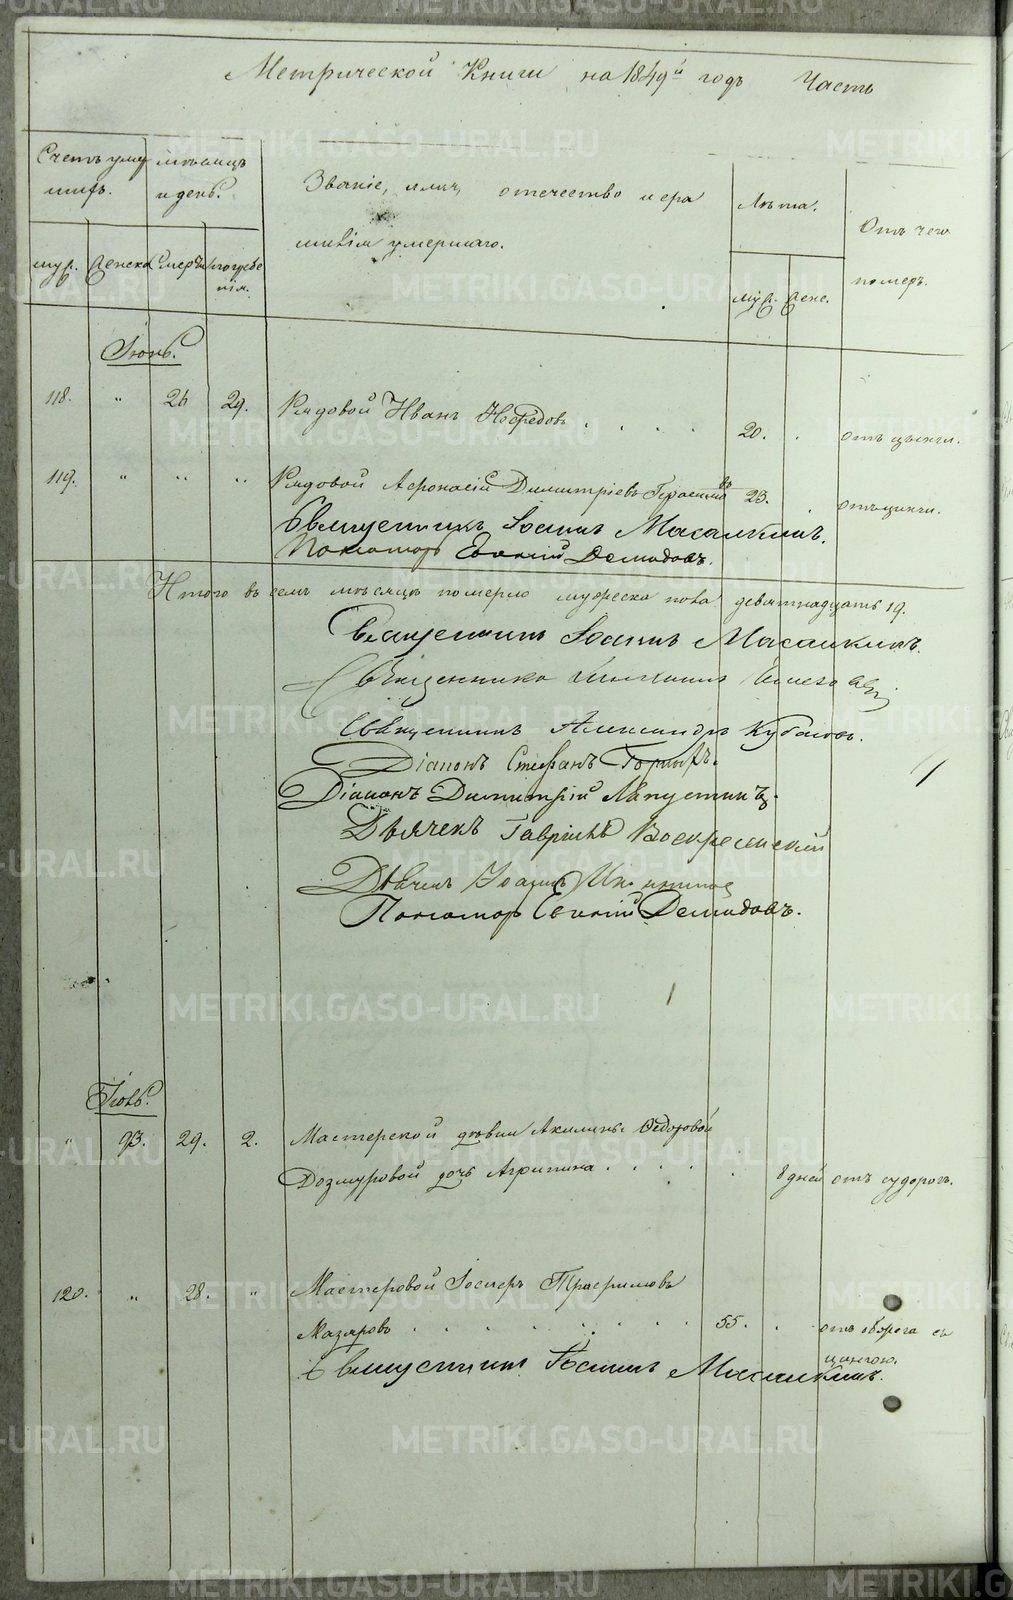 Метрической Книги на 1849й годъ Часть
Счетъ умер мѣсяцъ
шихъ. и день.
Званіе, имя, отечество и фа
милія умершаго.
Лѣта.
Отъ чего
померъ.
муж. женска Смерти погребе
нія.
муж. женс.
Іюнь.
118. " 26 29. Рядовой Иванъ . . . . 20. . отъ цынги.
119. " " " Рядовой Афонасій Димитріевъ Герасимовъ 23. . отъ цынги.
Священникъ Іоаннъ Масалкинъ.
Пономарь Евгеній Демидовъ.
Итого въ семъ мѣсяцѣ померло мужеска пола девятнадцать 19.
Священникъ Іоаннъ Масалкинъ.
Священникъ
Священникъ Александръ
Діаконъ Стефанъ
Діаконъ Димитрій
Дьячекъ Гавріилъ Воскресенскій
Дьячекъ Іоаннъ
Пономарь Евгеній Демидовъ.
Іюль.
" 93. 29. 2. Мастерской дѣвки Акилины Ѳедоровой
Дозмуровой дочь Агрипина . . . . . 8 дней отъ судорогъ.
120. " 28. " Мастеровой Іосифъ Трофимовъ
Мазяровъ . . . . . . . . 55. . отъ съ
цынгою.
Священникъ Іоаннъ Масалкинъ.
METRIKI.GASO-URAL.RU